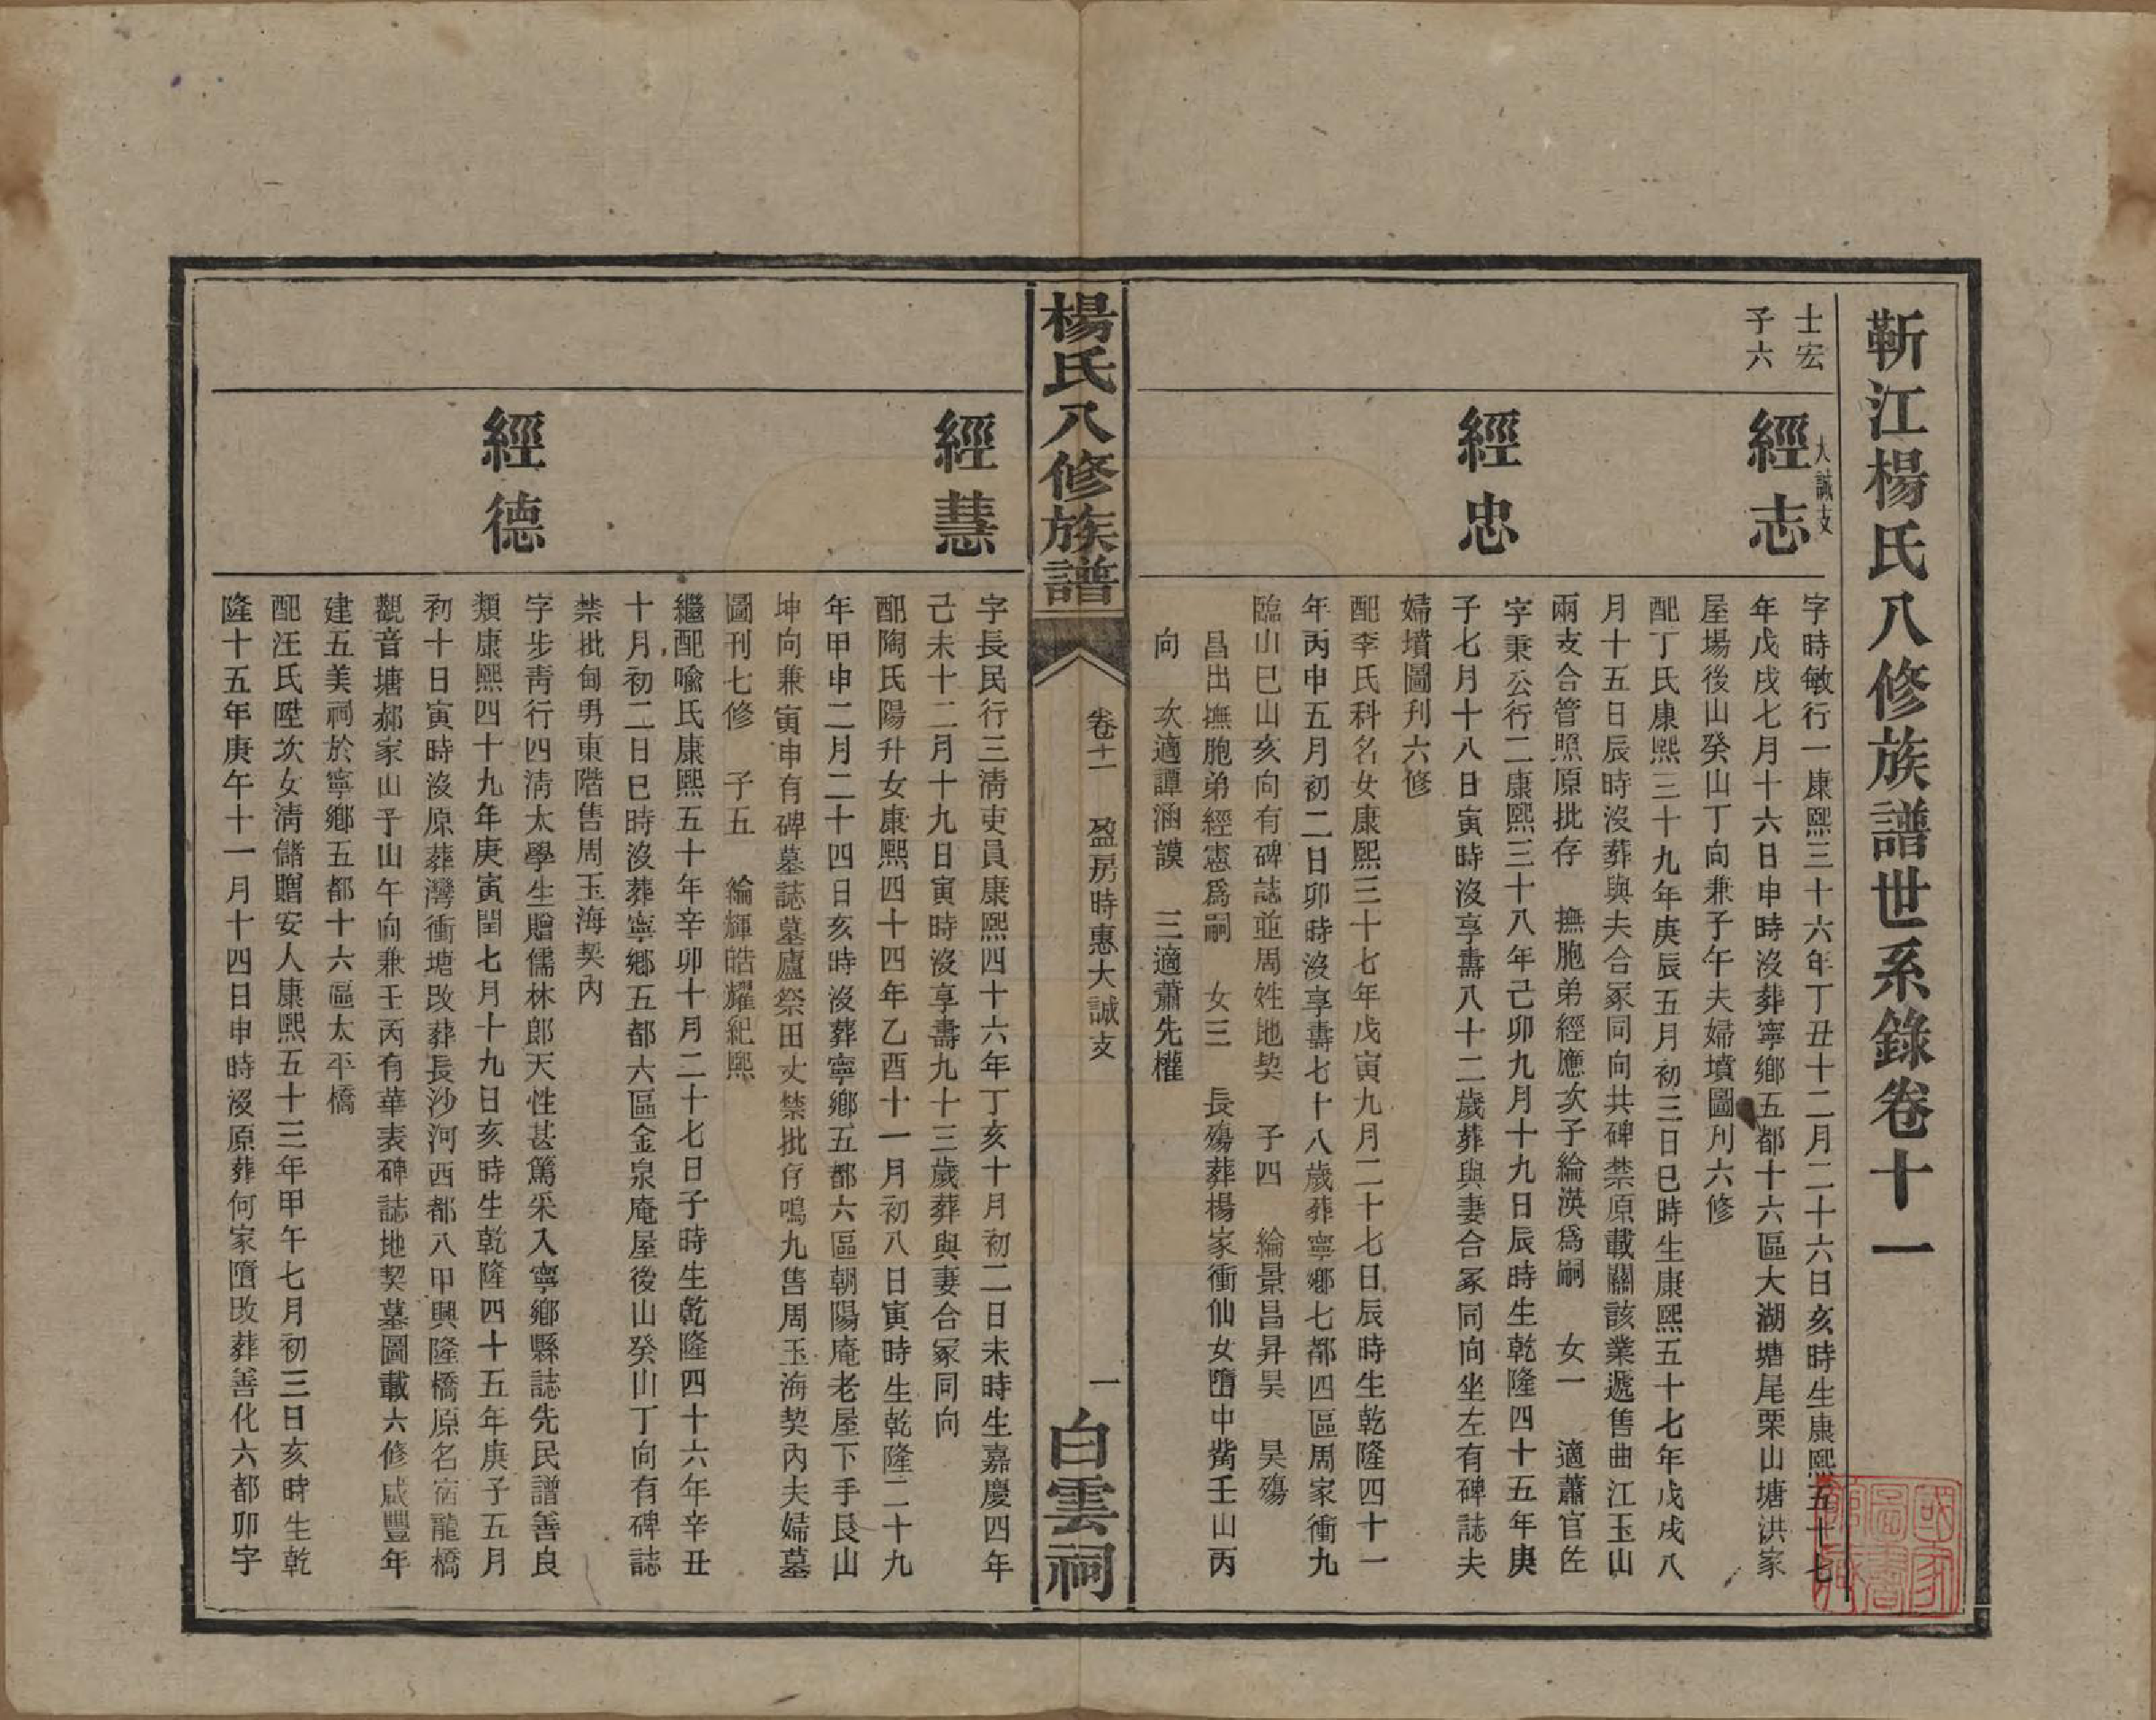 靳江楊氏八修族譜世系錄卷十一
士宏
子六
大誠支
經志
字時敏行一康熙三十六年丁丑十二月二十六日亥時生康熙五十七
年戊戌七月十六日申時沒葬寧鄉五都十六區大湖塘尾栗山塘洪家
屋場後山癸山丁向兼子午夫婦墳圖刋六修
配丁氏康熙三十九年庚辰五月初三日巳時生康熙五十七年戊戌八
月十五日辰時沒葬與夫合冢同向共碑禁原載關該業遞售曲江玉山
兩支合管照原批存 撫胞弟經應次子綸渶爲嗣 女一 適蕭官佐
經忠
字秉公行二康熙三十八年己卯九月十九日辰時生乾隆四十五年庚
子七月十八日寅時沒享壽八十二歲葬與妻合冢同向坐左有碑誌夫
婦墳圖刋六修
配李氏科名女康熙三十七年戊寅九月二十七日辰時生乾隆四十一
年丙申五月初二日卯時沒享壽七十八歲葬寧鄉七都四區周家衝九
臨山巳山亥向有碑誌並周姓地契 子四 綸景昌昇昊 昊殤
昌出撫胞弟經憲爲嗣 女三 長殤葬楊家衝仙女墮中觜壬山丙
向 次適譚涵謨 三適蕭先權
楊氏八修族譜
卷十一 盈房時惠大誠支
一
白雲祠
經慧
字長民行三淸吏員康熙四十六年丁亥十月初二日未時生嘉慶四年
己未十二月十九日寅時沒享壽九十三歲葬與妻合冢同向
配陶氏陽升女康熙四十四年乙酉十一月初八日寅時生乾隆二十九
年甲申二月二十四日亥時沒葬寧鄉五都六區朝陽庵老屋下手艮山
坤向兼寅申有碑墓誌墓廬祭田丈禁批存鳴九售周玉海契內夫婦墓
圖刊七修 子五 綸輝晧耀紀熙
繼配喩氏康熙五十年辛卯十月二十七日子時生乾隆四十六年辛丑
十月初二日巳時沒葬寧鄉五都六區金泉庵屋後山癸山丁向有碑誌
禁批甸男東階售周玉海契內
經德
字步靑行四淸太學生贈儒林郎天性甚篤采入寧鄉縣誌先民譜善良
類康熙四十九年庚寅閏七月十九日亥時生乾隆四十五年庚子五月
初十日寅時沒原葬灣衝塘改葬長沙河西都八甲興隆橋原名宿龍橋
觀音塘郝家山子山午向兼壬丙有華表碑誌地契墓圖載六修咸豐年
建五美祠於寧鄉五都十六區太平橋
配汪氏陞次女淸儲贈安人康熙五十三年甲午七月初三日亥時生乾
隆十五年庚午十一月十四日申時沒原葬何家墮改葬善化六都卯字
國家圖書館藏